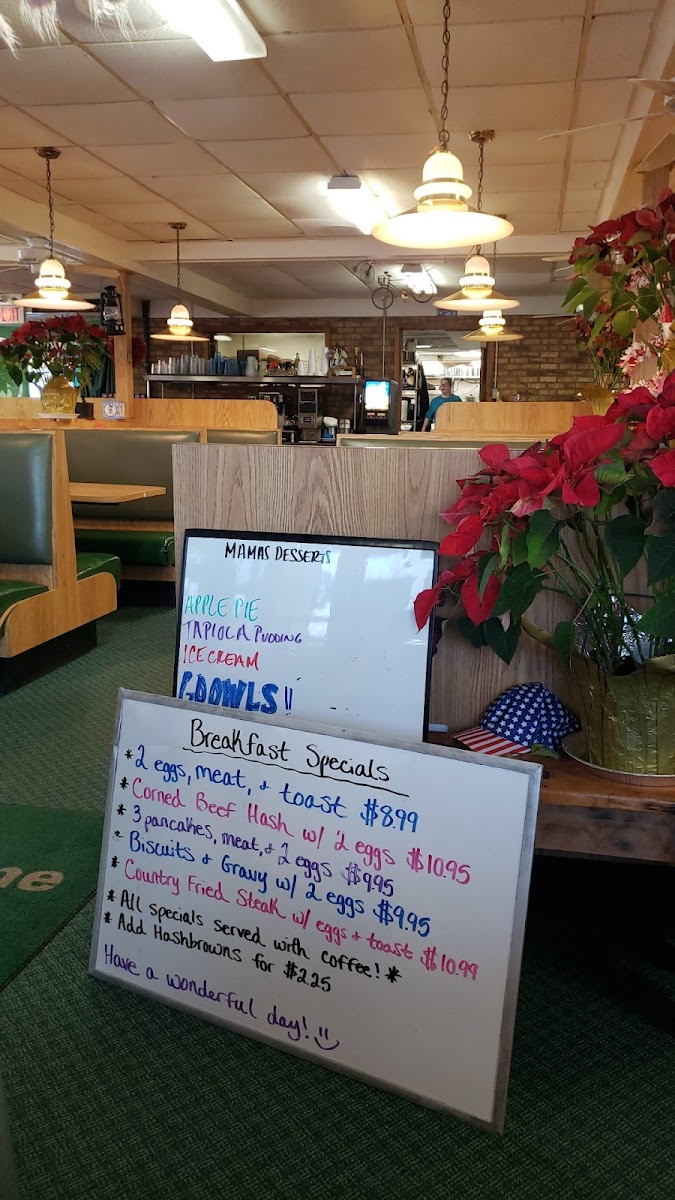 MAMAS DESSERTS
APPLE PIE
TAPIOCA PUDDING
ICE CREAM
Breakfast Specials
* 2 eggs, meat, + toast $8.99
* Corned Beef Hash w/ 2 eggs $10.95
* 3 pancakes, meat, + 2 eggs $9.95
* Biscuits + Gravy w/ 2 eggs $9.95
* Country Fried Steak w/ eggs + toast $10.99
* All specials served with coffee! *
* Add Hashbrowns for $2.25
Have a wonderful day!